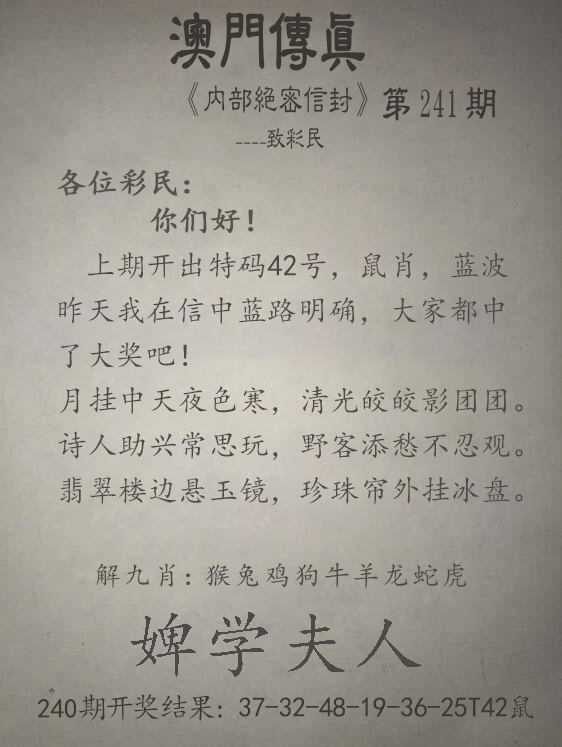 澳門傳眞
《内部絕密信封》第241期
----致彩民
各位彩民：
你们好！
上期开出特码42号，鼠肖，蓝波
昨天我在信中蓝路明确，大家都中
了大奖吧！
月挂中天夜色寒，清光皎皎影团团。
诗人助兴常思玩，野客添愁不忍观。
翡翠楼边悬玉镜，珍珠帘外挂冰盘。
解九肖：猴兔鸡狗牛羊龙蛇虎
婢学夫人
240期开奖结果：37-32-48-19-36-25T42鼠